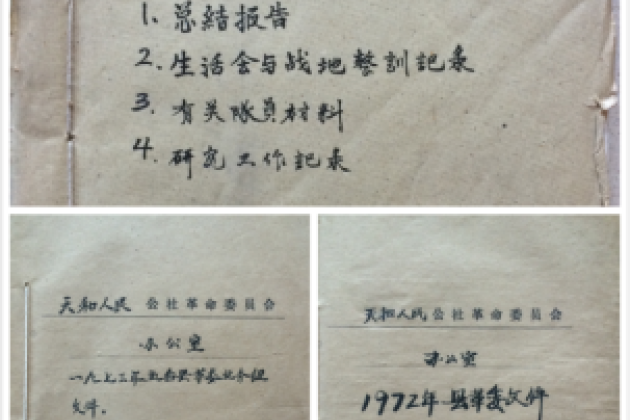 1. 总结报告
2. 生活会与战地整訓記录
3. 有关隊員材料
4. 研究工作記录
天和人民 公社革命委員会
办公室
一九七三年
文件。
天和人民 公社革命委員会
办公室
1972年 县革委文件